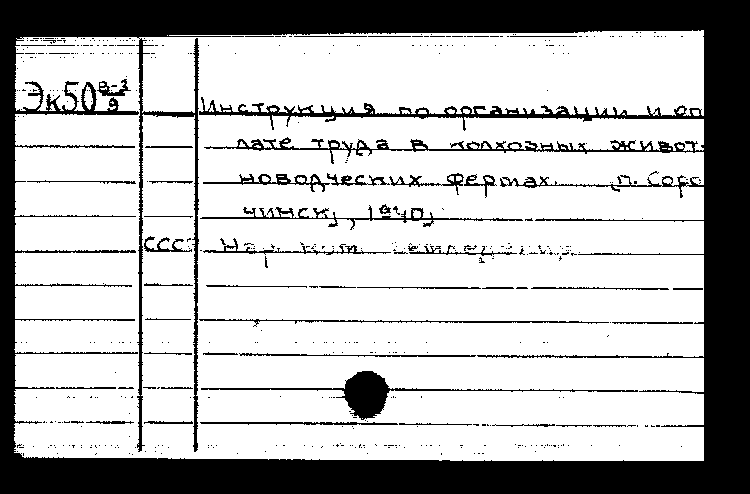 Эк50 В-3/9
Инструкция по организации и оп
лате труда в колхозных живот-
новодческих фермах. [п. Соро
чинск], 1940]
СССР Нар. ком. земледелия